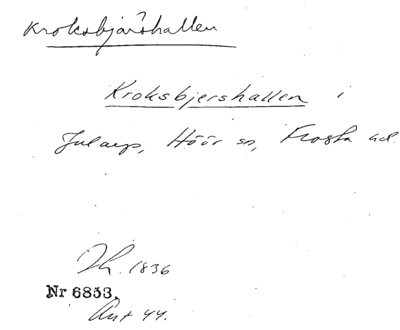 Kroksbjärshallen
Kroksbjershallen i
Jularp, Höör sn, Frosta hd.
Th. 1836
Nr 6853.
Ant 44.